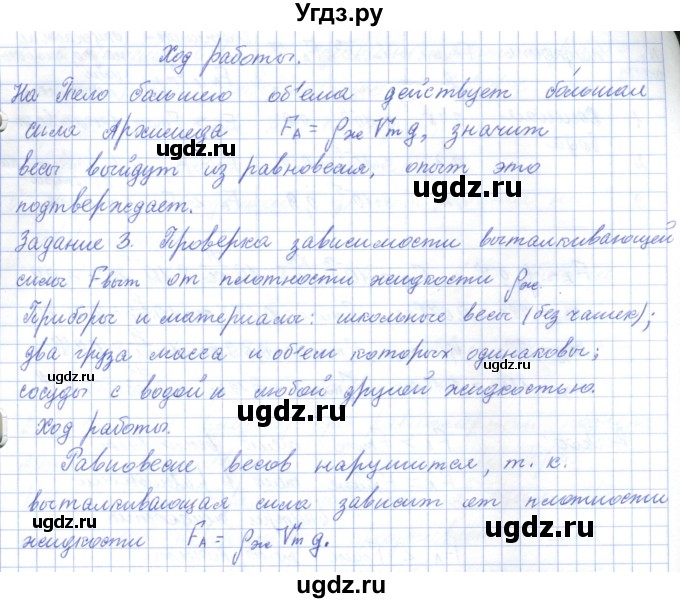 Угдз.ру
Ход работы.
На тело большего объема действует большая
сила Архимеда F_A = ρ_ж V_т g, значит
весы выйдут из равновесия, опыт это
подтверждает.
Задание 3. Проверка зависимости выталкивающей
силы Fвыт от плотности жидкости ρ_ж
Приборы и материалы: школьные весы (без чашек);
два груза масса и объем которых одинаковы;
сосуды с водой и любой другой жидкостью.
Ход работы.
Равновесие весов нарушится, т. к.
выталкивающая сила зависит от плотности
жидкости F_A = ρ_ж V_т g.
ugdz.ru
ugdz.ru
ugdz.ru
ugdz.ru
ugdz.ru
ugdz.ru
ugdz.ru
ugdz.ru
ugdz.ru
ugdz.ru